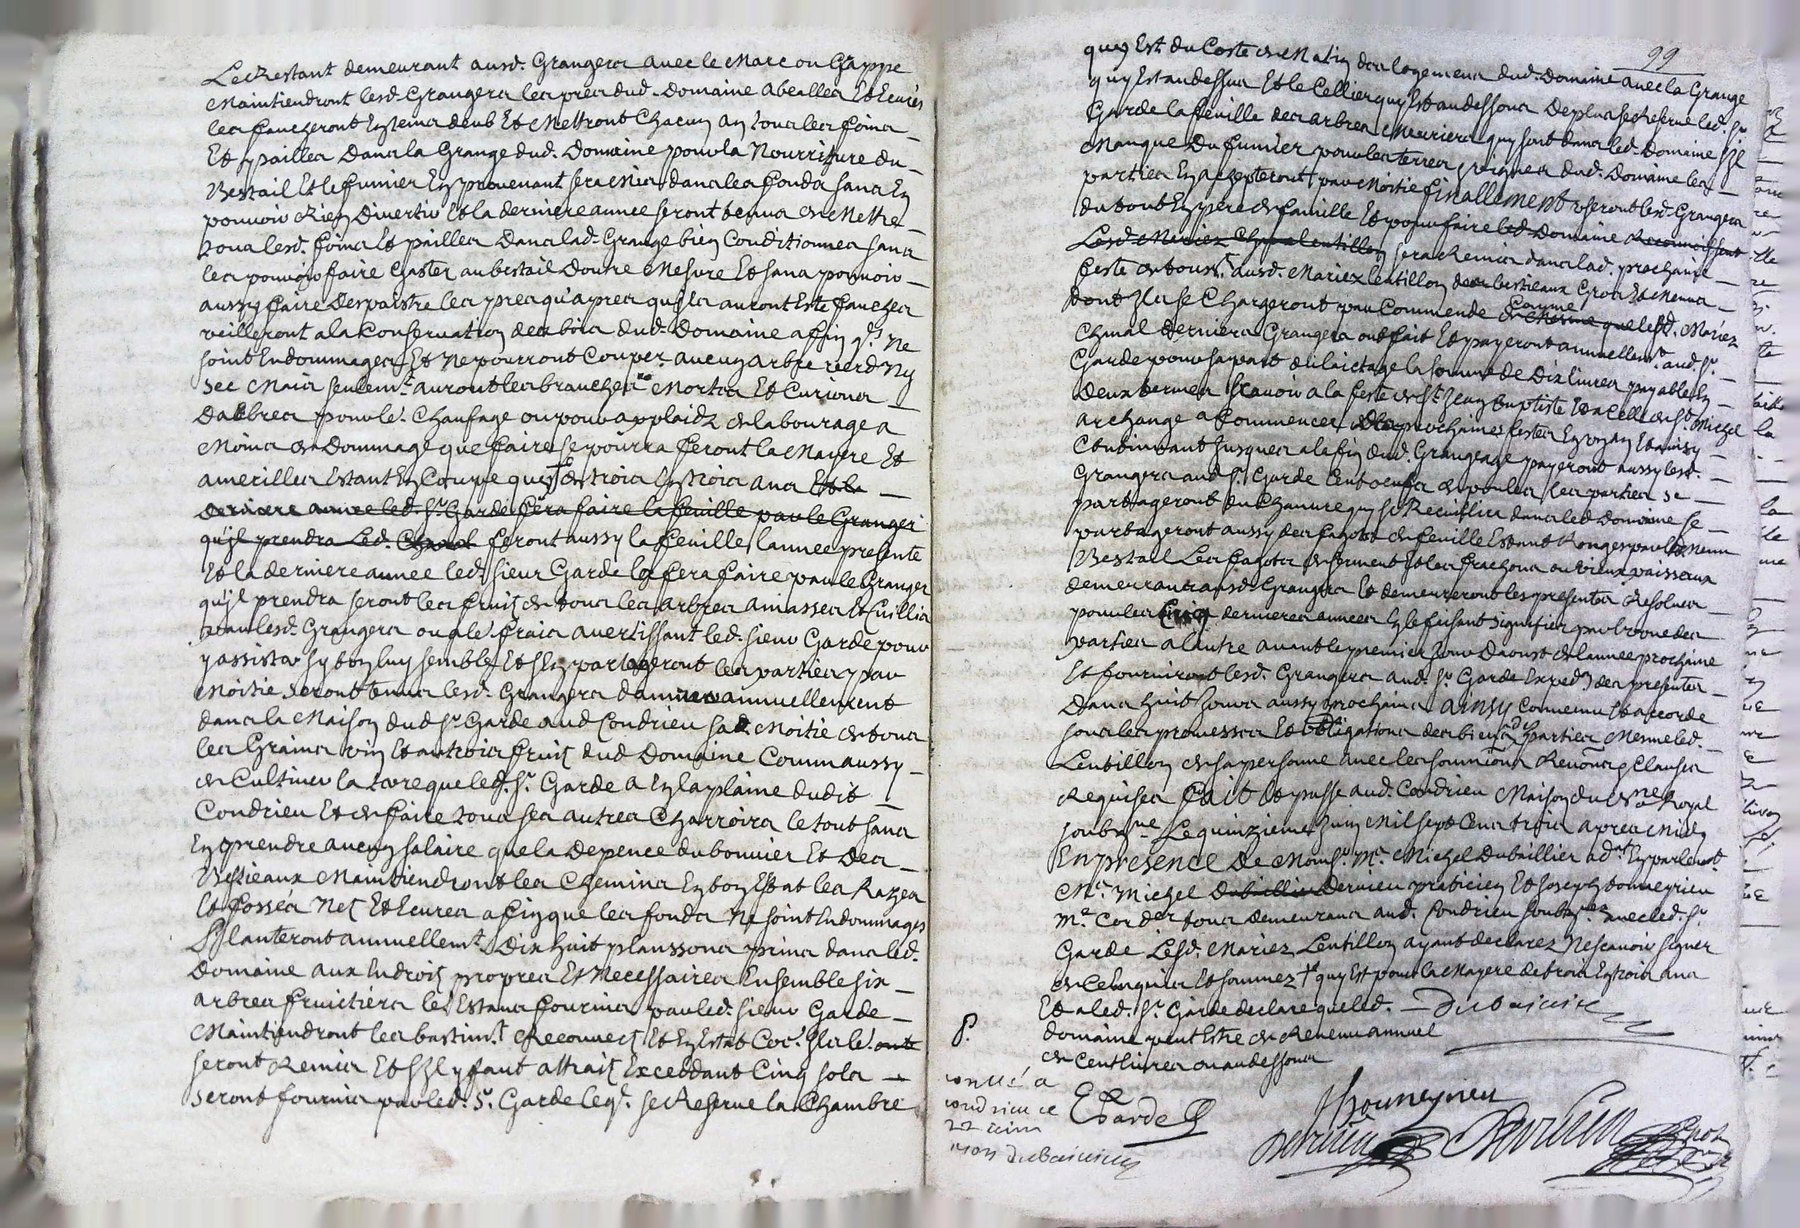 Le Restant demeurant ausd. Grangers avec le Marc ou Grappe
Maintiendront lesd. Grangers les prea dud. Domaine abeallea Et Ecures
les faucheront En temps deub Et Mettront Chacun an tous les foins
Et pailles Dans la Grange dud. Domaine pour la Nourriture du
Bestail Et le fumier En provenant sera Mis dans les fonds sans En
pouvoir Rien Divertir Et la derniere annee seront tenus de Mettre
tous lesd. foins Et pailles Dans lad. Grange bien Conditionnes sans
les pouvoir faire Gaster au bestail Doutre Mesure Et sans pouvoir
aussy faire Despaistre les prea qu'apres quils auront Este fauchea
veilleront a la Conservation des bois dud. Domaine affin qls. Ne
soint Endommages Et Ne pourront Couper aucun arbre verd Ny
sec Mais seulemt. auront les branches Mortes Et Curions
Darbres pour le. Chaufage ou pour applaidz de labourage a
Moins de Dommage que faire se pourra feront la Mayere Et
amerilles Estant En Couppe quest de trois En trois ans Et la
derniere annee led. Sr. Garde fera faire la feuille par le Granger
qu'il prendra Led. Chanal feront aussy la feuille lannee presente
Et la derniere annee led. sieur Garde la fera faire par le Granger
qu'jl prendra seront les fruis de tous les arbres amasses Et Cuillis
par lesd. Grangers ou a le. frais avertissant led. sieur Garde pour
y assister sy bon luy semble Et s'En partageront les parties par
Moitie seront tenus lesd. Grangers damener annuellement
dans la Maison dud Sr. Garde aud Condrieu sad. Moitie de tous
les Grains vin Et autres fruis dud Domaine Comm aussy
de Cultiver la terre que led. Sr. Garde a En la plaine dudit
Condrieu Et de faire tous ses autres Charrois le tout sans
En prendre aucun salaire que la Depence du bouvier Et Des
Bestieaux Maintiendront les Chemins En bon Estat les Razes
Et fossés Nes Et Ecures afin que les fonds Ne soint Endommages
Planteront annuellemt. Dix huit planssons prins dans led.
Domaine aux Endrois propres Et Necessaires Ensemble six
arbres fruictiers les Estans fournis par led. sieur Garde
Maintiendront les bastimt. Recouvers Et En Estat
seront Remis Et s'Il y faut attrais Exceddant Cinq sols
seront fournis par led. Sr. Garde leql. se Reserve la Chambre
99
quy Est du Coste de Matin des logemens dud. Domaine avec la Grange
quy Est au dessus Et le Cellier quy Est au dessous De plus se Reserve led. Sr.
Garde la feuille des arbres Meuriers quy sont dans led. Domaine s'Jl
Manque Du fumier pour les terres Et vignes dud. Domaine les
parties En achepteront par Moitie finallement useront lesd. Grangers
du tout En pere de famille Et pour faire led. Domaine
Lesd. Mariez Lentillon sera Remis dans lad. prochaine
feste de touss. ausd. Mariez Lentillon des bestieaux Gros Et Menus
dont Ils se Chargeront par Commende Comme que lesd. Mariez
Chanal derniers Grangers ont fait Et payeront annuellemt. aud. Sr.
Garde pour sa part du laictage la somme de Dix livres payable En
Deux termes scavoir a la feste de St. Jean Baptiste Et a Celle de St. Michel
archange a Commencer prochaines festes En un an Et ainsy
Continuant Jusques a la fin dud. Grangeage payeront aussy lesd.
Grangers aud Sr. Garde Cent oeufs les parties se
partageront du Chanvre quy se Recuillira dans led. Domaine se
partageront aussy des fagots de feuille Estant Ronges par le menu
Bestail Les fagots de serment Et les vieux paisseaux
demeurans ausd. Grangers Et demeureront les presentes Resolues
pour les Cinq dernieres annees En le faisant signifier par l'une des
parties a l'autre avant le premier Jour Daoust de lannee prochaine
Et fourniront lesd. Grangers aud. Sr. Garde Expedon. des presentes
Dans huit Jours aussy prochains ainsy Convenu Et accorde
sous les promesses Et obligations des biens des parties Mesme led.
Lentillon de sa personne avec les soumissions Renonc. Clauses
Requises fait Et passe aud. Condrieu Maison du Nre. Royal
soubsne. Le quinzieme Juin Mil sept Cens trois apres Midy
En presence De Monsr. Me. Michel Dubaillier adat. En parlemt.
Me. Michel Dubaillier Dervieu praticien Et Joseph bonneyrieu
Me. Corder tous demeurans aud. Condrieu soubsnes. avec led. Sr.
Garde Lesd. Mariez Lentillon ayant declarez Ne scavoir signer
de Ce Enquis Et sommez + quy Est pour la Mayere de trois En trois ans
Et a led. Sr. Garde declare que led.
domaine peut Estre de Revenu annuel
de Cent livres ou au dessous
EGarde
Dervieu